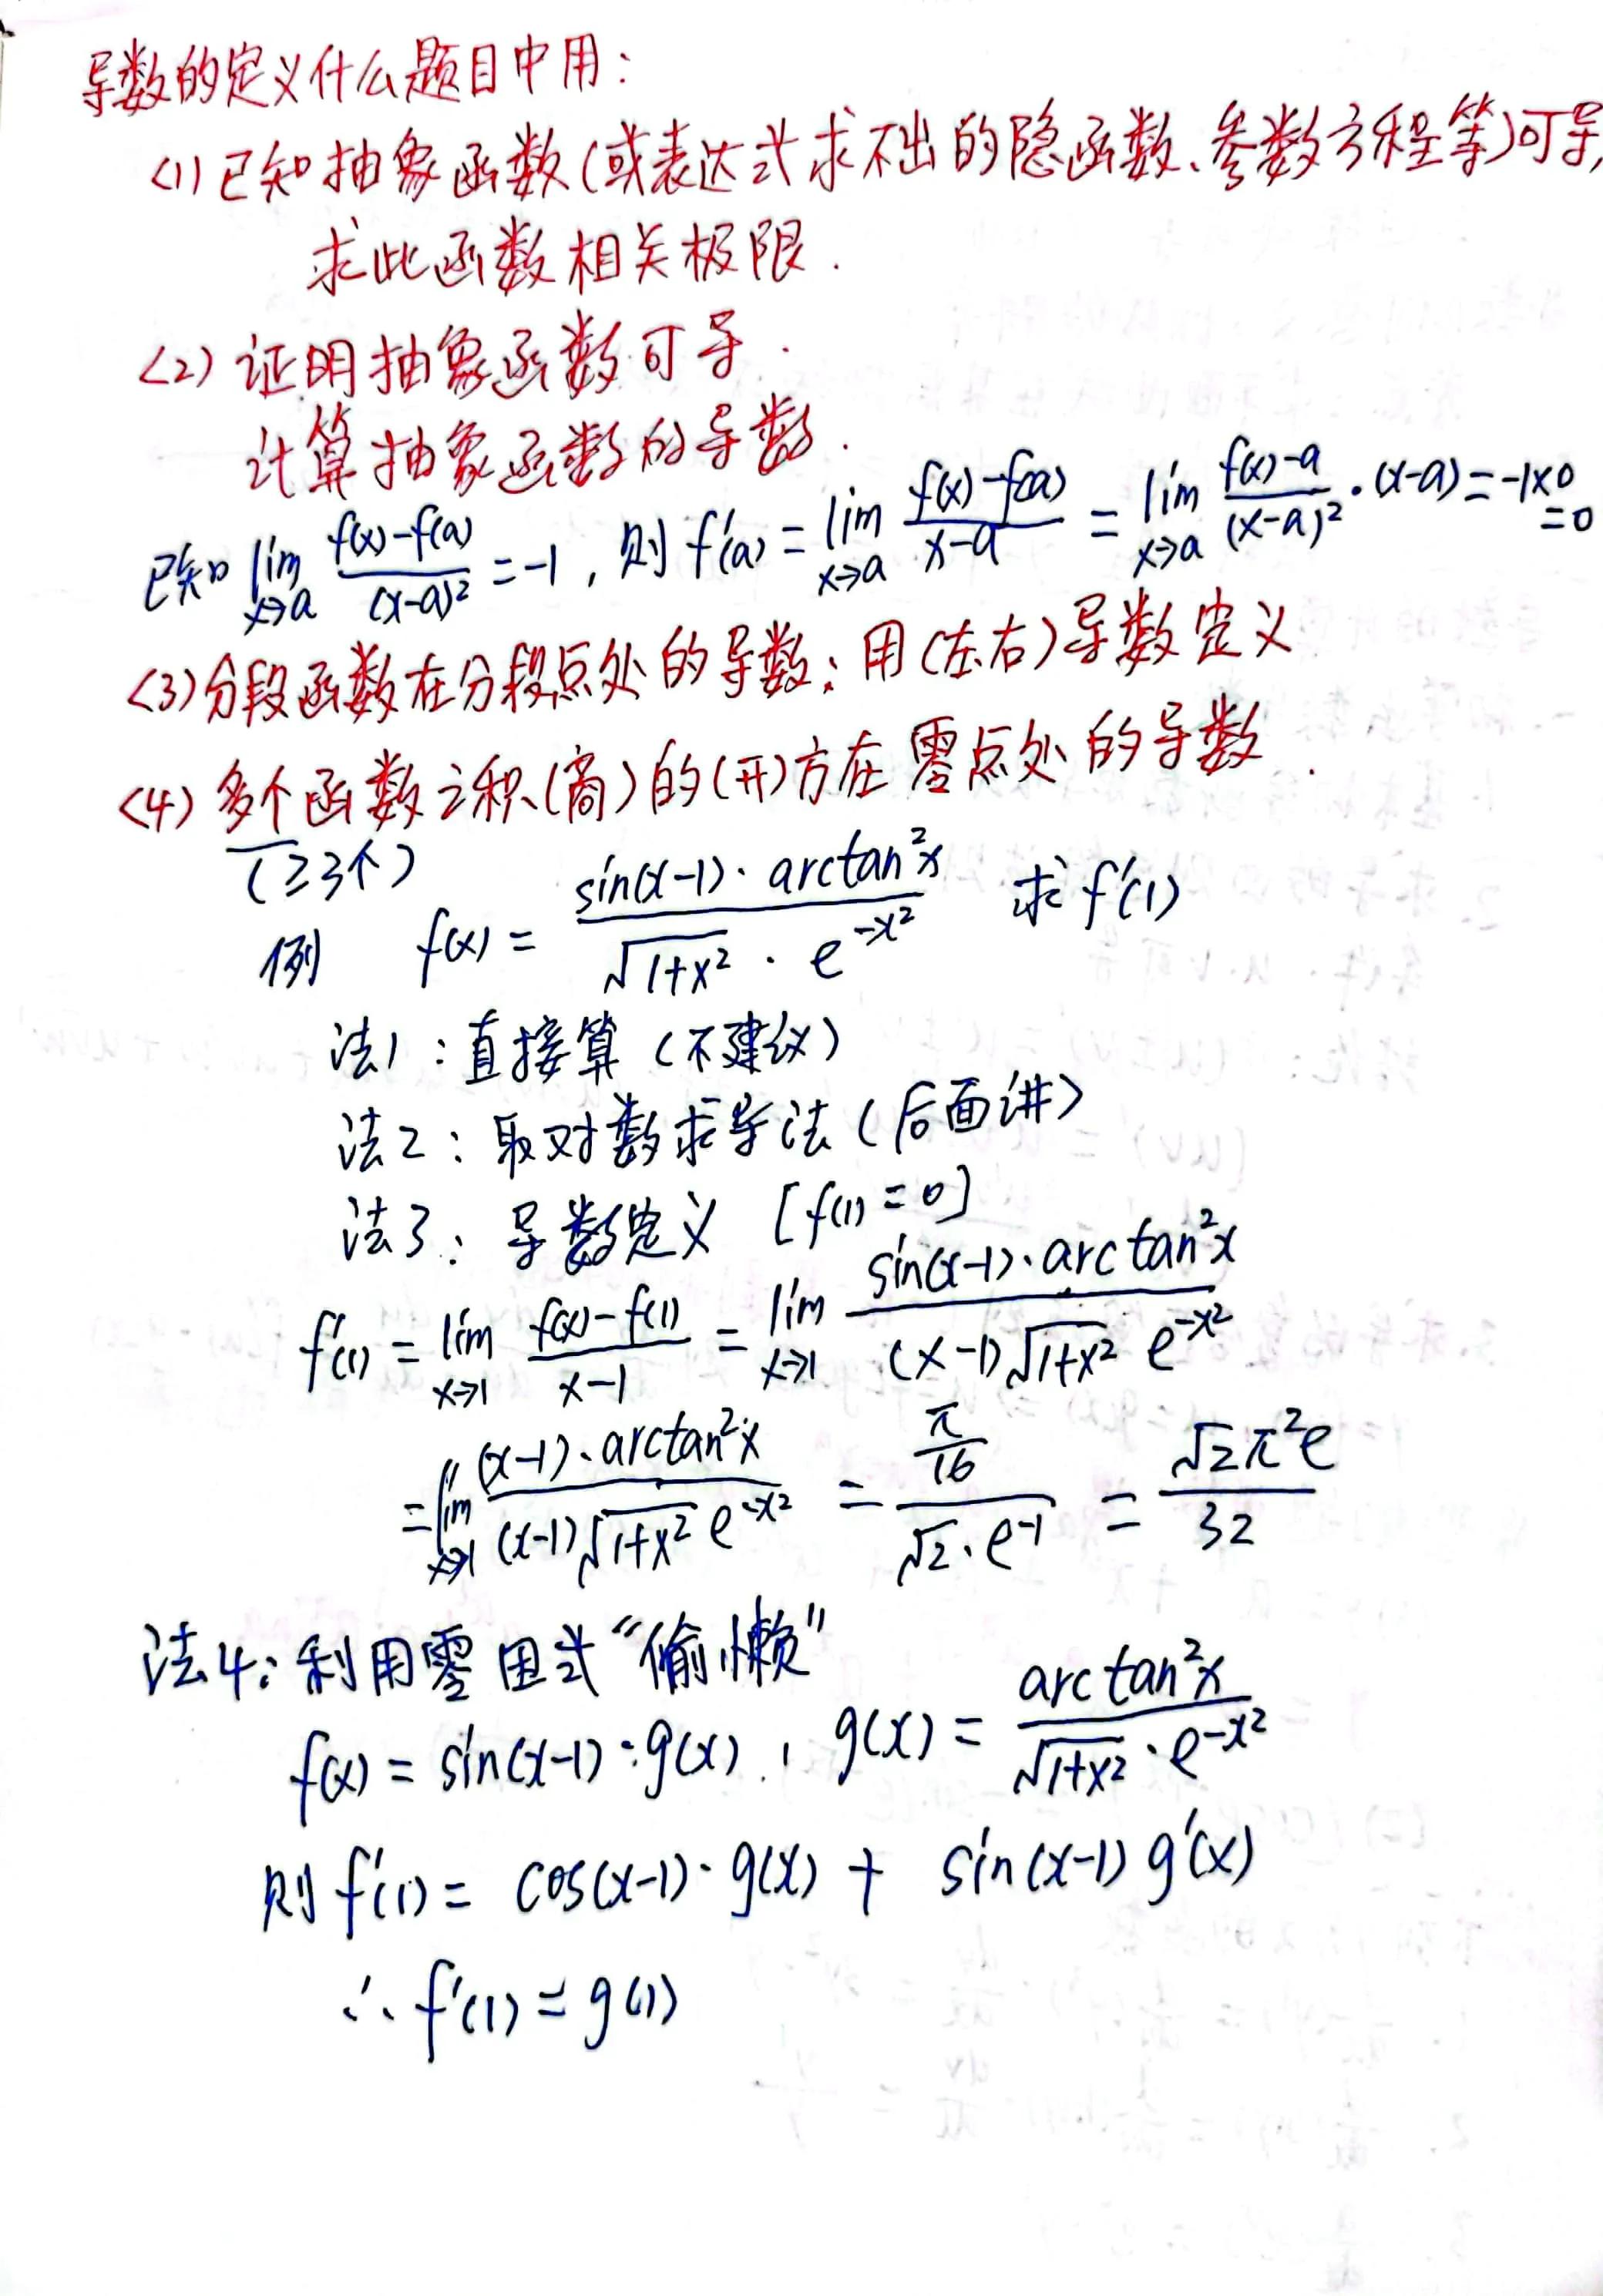 导数的定义什么题目中用:
(1) 已知抽象函数(或表达式求不出的隐函数、参数方程等)可导,
求此函数相关极限.
(2) 证明抽象函数可导.
计算抽象函数的导数.
已知 lim_{x→a} (f(x)-f(a))/(x-a)² = -1, 则 f'(a) = lim_{x→a} (f(x)-f(a))/(x-a) = lim_{x→a} (f(x)-a)/(x-a)² · (x-a) = -1×0 = 0
(3) 分段函数在分段点处的导数: 用(左右)导数定义
(4) 多个函数之积(商)的(开)方在零点处的导数.
(≥3个)
例 f(x) = (sin(x-1) · arctan²x)/(√(1+x²) · e^{-x²}) 求 f'(1)
法1: 直接算 (不建议)
法2: 取对数求导法 (后面讲)
法3: 导数定义 [f(1)=0]
f'(1) = lim_{x→1} (f(x)-f(1))/(x-1) = lim_{x→1} (sin(x-1) · arctan²x)/((x-1)√(1+x²) e^{-x²})
= lim_{x→1} ((x-1) · arctan²x)/((x-1)√(1+x²) e^{-x²}) = (π/16)/(√2 · e^{-1}) = √2π²e/32
法4: 利用零因式“偷懒”
f(x) = sin(x-1) · g(x), g(x) = arctan²x/(√(1+x²) · e^{-x²})
则 f'(1) = cos(x-1) · g(x) + sin(x-1) g'(x)
∴ f'(1) = g(1)